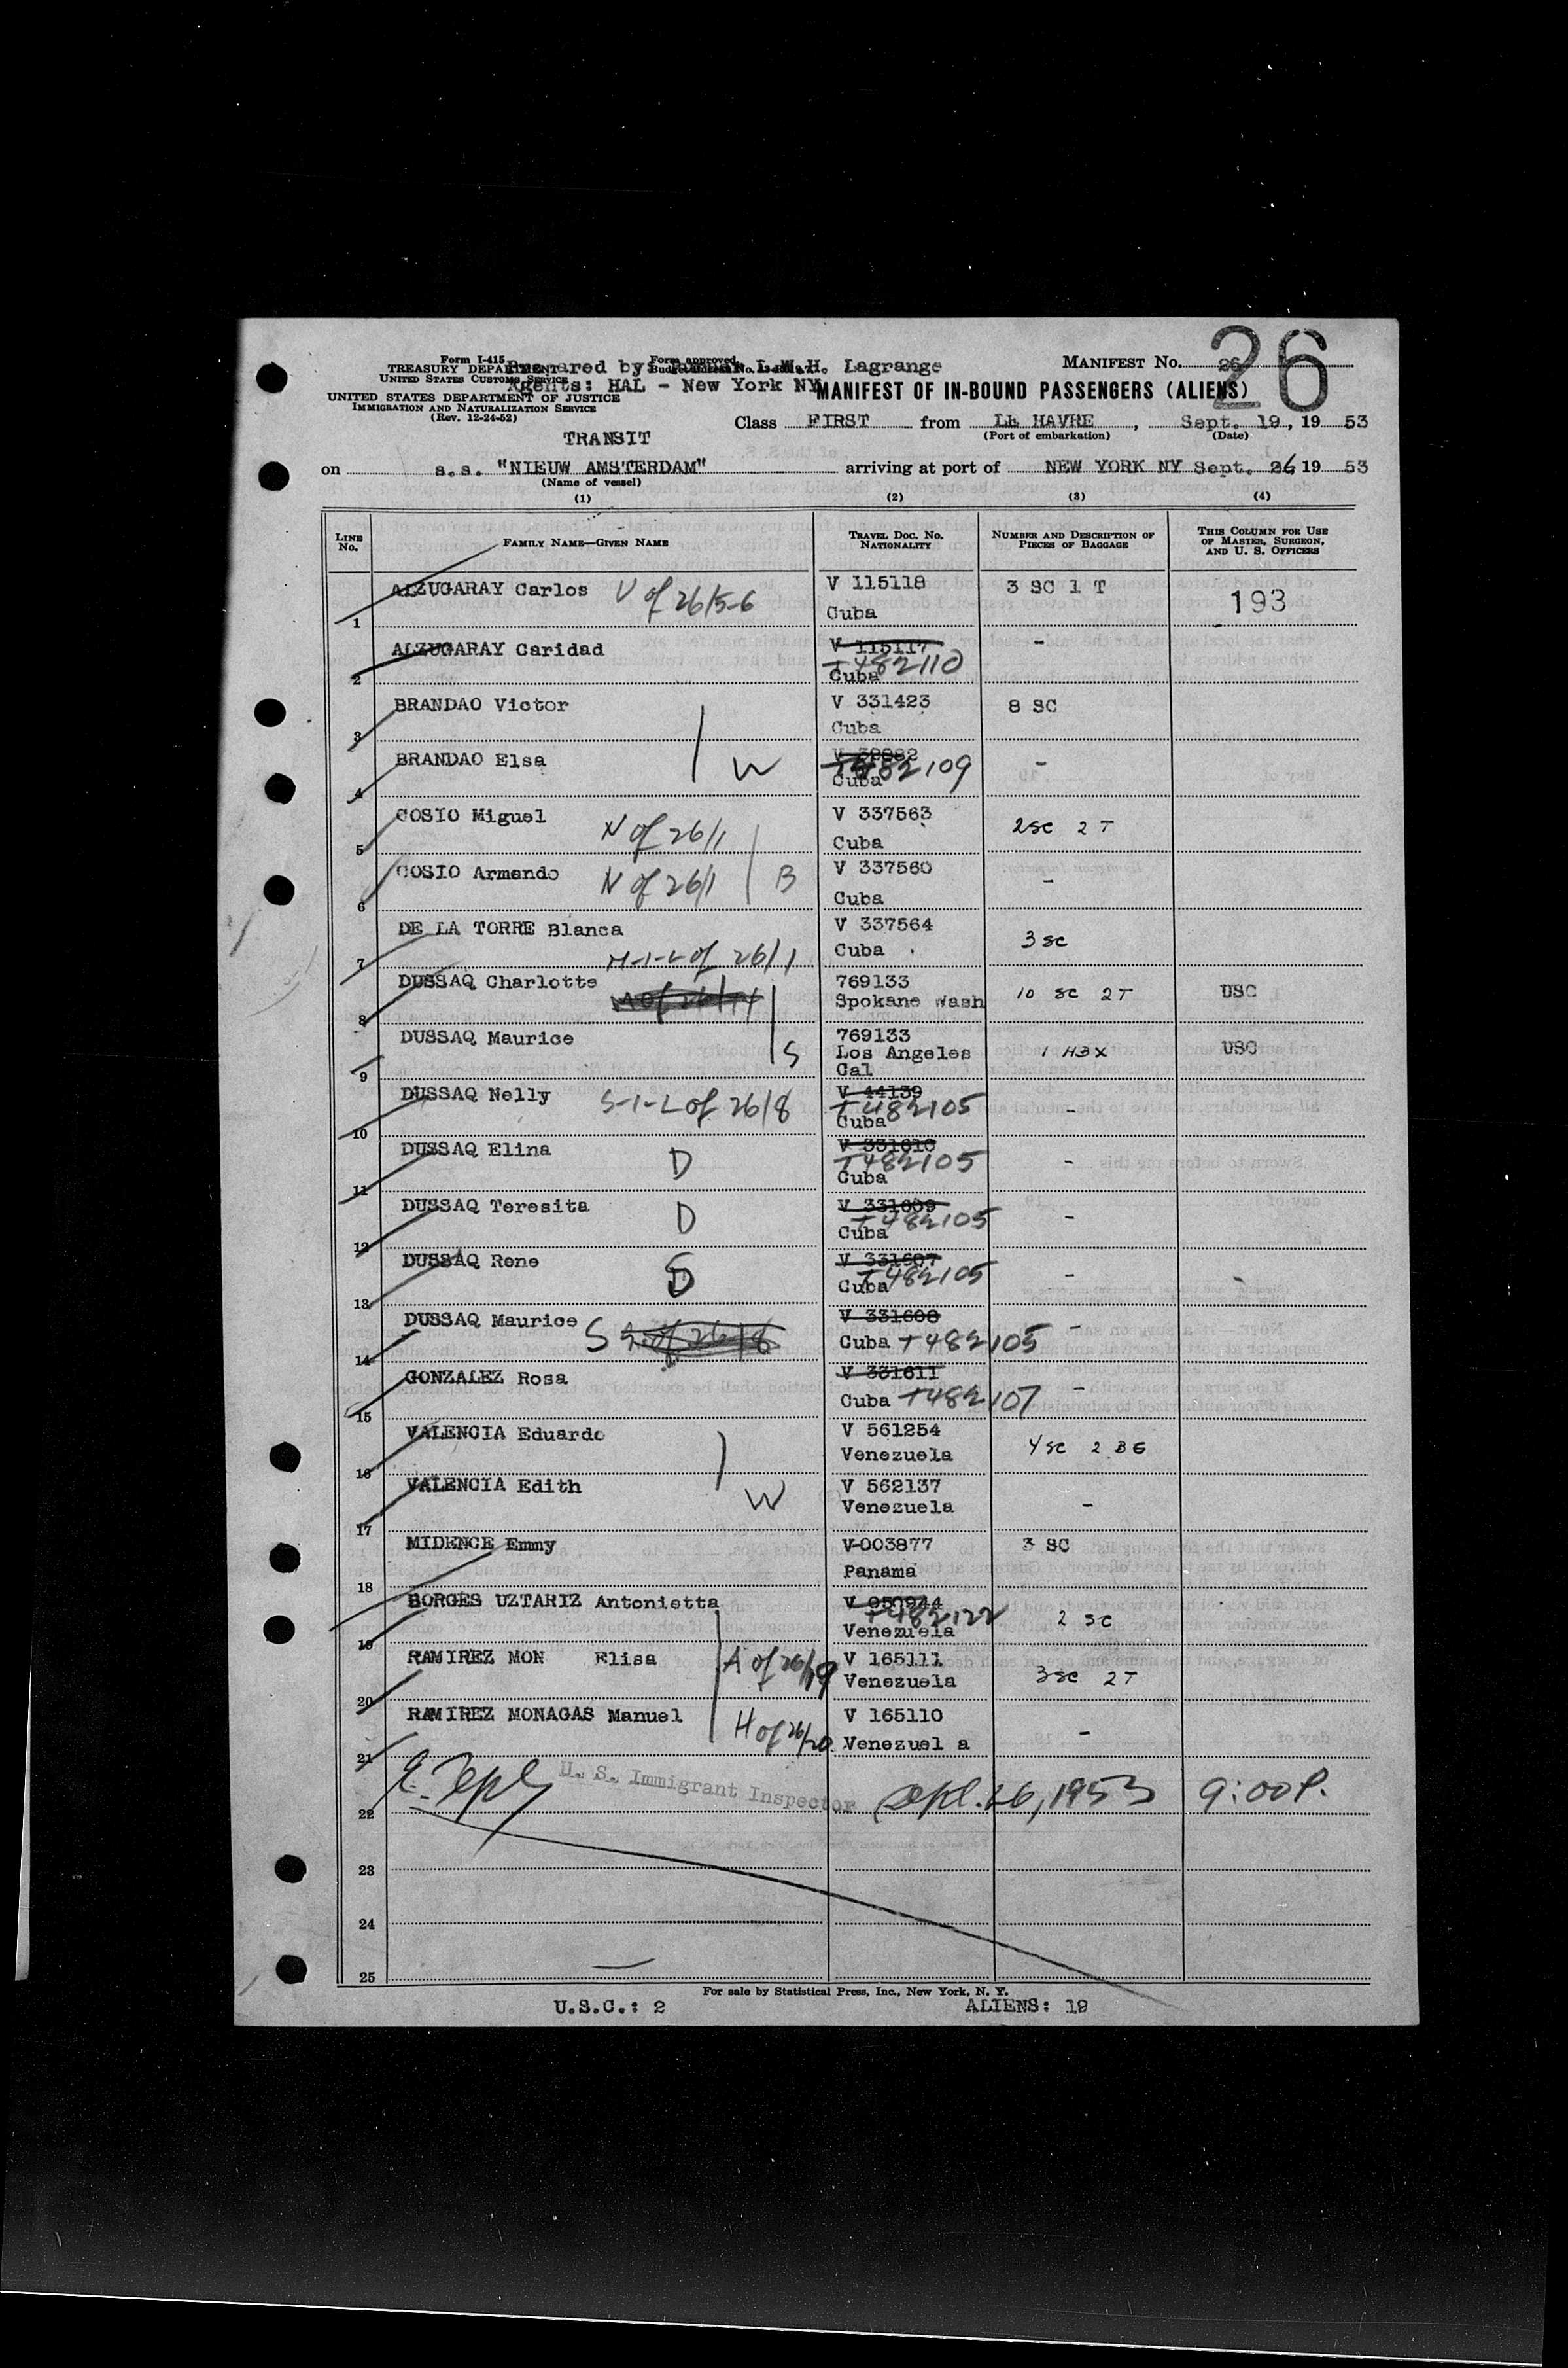 Form I-415
TREASURY DEPARTMENT
UNITED STATES CUSTOMS SERVICE
UNITED STATES DEPARTMENT OF JUSTICE
IMMIGRATION AND NATURALIZATION SERVICE
(Rev. 12-24-52)
Form approved
Prepared by: L.W.H. Lagrange
Agents: HAL - New York NY
MANIFEST No. 26
26
MANIFEST OF IN-BOUND PASSENGERS (ALIENS)
Class FIRST from LE HAVRE, Sept. 19, 1953
(Port of embarkation) (Date)
TRANSIT
on s.s. "NIEUW AMSTERDAM" arriving at port of NEW YORK NY Sept. 26 1953
(Name of vessel)
(1) (2) (3) (4)
LINE NO. FAMILY NAME—GIVEN NAME TRAVEL DOC. NO. NATIONALITY NUMBER AND DESCRIPTION OF PIECES OF BAGGAGE THIS COLUMN FOR USE OF MASTER, SURGEON, AND U. S. OFFICERS
1 ALZUGARAY Carlos V of 26/5-6 V 115118 Cuba 3 SC 1 T 193
2 ALZUGARAY Caridad V 115117 T482110 Cuba -
3 BRANDAO Victor V 331423 Cuba 8 SC
4 BRANDAO Elsa W T482109 Cuba -
5 COSIO Miguel N of 26/1 V 337563 Cuba 2 SC 2 T
6 COSIO Armando N of 26/1 B V 337560 Cuba -
7 DE LA TORRE Blanca M-I-L of 26/1 V 337564 Cuba 3 SC
8 DUSSAQ Charlotte 769133 Spokane Wash 10 SC 2 T USC
9 DUSSAQ Maurice S 769133 Los Angeles Cal 1 HBX USC
10 DUSSAQ Nelly S-I-L of 26/8 V 44139 T482105 Cuba -
11 DUSSAQ Elina D V 331610 T482105 Cuba -
12 DUSSAQ Teresita D V 331609 T482105 Cuba -
13 DUSSAQ Rene S V 331607 T482105 Cuba -
14 DUSSAQ Maurice S V 331608 Cuba T482105 -
15 GONZALEZ Rosa V 331611 Cuba T482107 -
16 VALENCIA Eduardo V 561254 Venezuela 4 SC 2 BG
17 VALENCIA Edith W V 562137 Venezuela -
18 MIDENCE Emmy V-003877 Panama 3 SC
19 BORGES UZTARIZ Antonietta V 057944 T482122 Venezuela 2 SC
20 RAMIREZ MON Elisa A of 26/19 V 165111 Venezuela 3 SC 2 T
21 RAMIREZ MONAGAS Manuel H of 26/20 V 165110 Venezuel a -
22 U. S. Immigrant Inspector Sept. 26, 1953 9:00 P.
23
24
25
For sale by Statistical Press, Inc., New York, N. Y.
U.S.C.: 2 ALIENS: 19